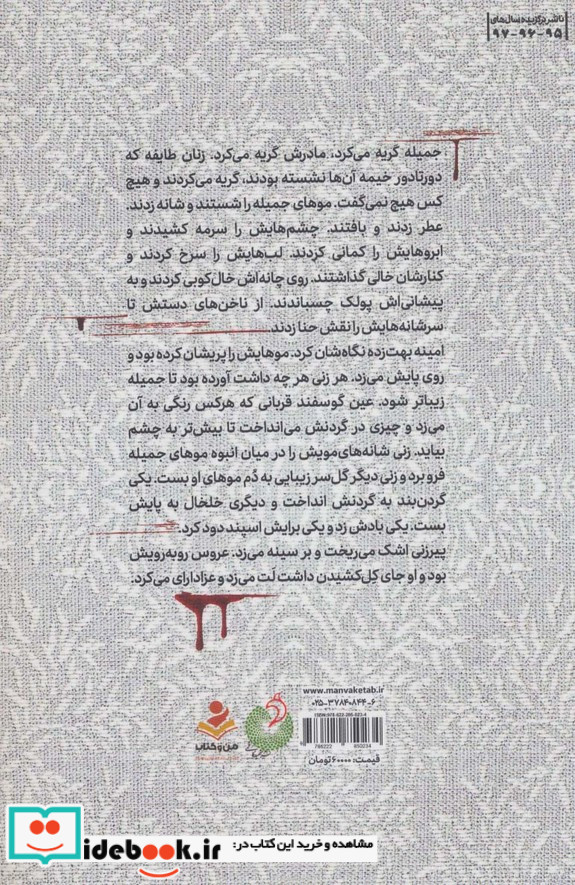 ناشر برگزیده سال‌های
۹۵-۹۶-۹۷
جمیله گریه می‌کرد، مادرش گریه می‌کرد. زنان طایفه که
دورتادور خیمه آن‌ها نشسته بودند، گریه می‌کردند و هیچ
کس هیچ نمی‌گفت. موهای جمیله را شستند و شانه زدند.
عطر زدند و بافتند. چشم‌هایش را سرمه کشیدند و
ابروهایش را کمانی کردند. لب‌هایش را سرخ کردند و
کنارشان خالی گذاشتند. روی چانه‌اش خال‌کوبی کردند و به
پیشانی‌اش پولک چسباندند. از ناخن‌های دستش تا
سرشانه‌هایش را نقش حنا زدند.
امینه بهت‌زده نگاه‌شان کرد. موهایش را پریشان کرده بود و
روی پایش می‌زد. هر زنی هر چه داشت آورده بود تا جمیله
زیباتر شود. عین گوسفند قربانی که هرکس رنگی به آن
می‌زد و چیزی در گردنش می‌انداخت تا بیش‌تر به چشم
بیاید. زنی شانه‌های‌مویش را در میان انبوه موهای جمیله
فرو برد و زنی دیگر گل‌سر زیبایی به دُم موهای او بست. یکی
گردن‌بند به گردنش انداخت و دیگری خلخال به پایش
بست. یکی بادش زد و یکی برایش اسپند دود کرد.
پیرزنی اشک می‌ریخت و بر سینه می‌زد. عروس روبه‌رویش
بود و او جای کِل‌کشیدن داشت لَت می‌زد و عزادارای می‌کرد.
www.manvaketab.ir
۰۲۵-۳۷۸۴۰۸۴۴-۶
قیمت: ۶۰۰۰۰ تومان
من و کتاب
مشاهده و خرید این کتاب در:
idebook.ir